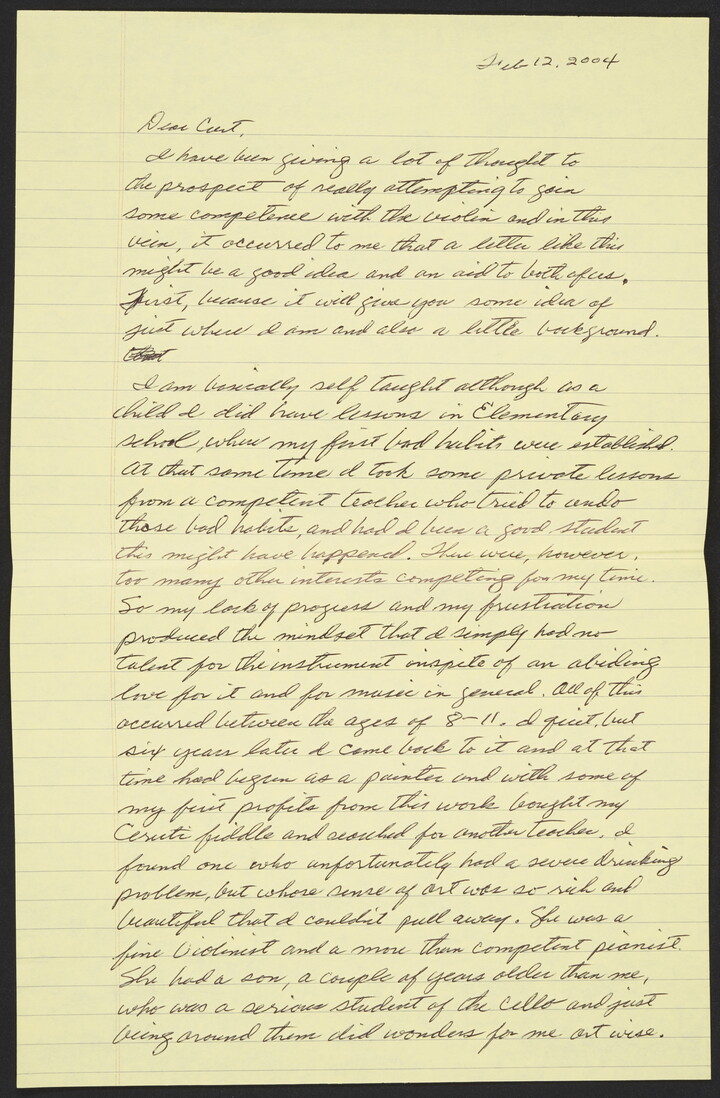 Feb 12, 2004
Dear Curt,
I have been giving a lot of thought to
the prospect of really attempting to gain
some competence with the violin and in this
vein, it occurred to me that a letter like this
might be a good idea and an aid to both of us.
First, because it will give you some idea of
just where I am and also a little background.
I am basically self taught although as a
child I did have lessons in Elementary
school, where my first bad habits were established.
At that same time I took some private lessons
from a competent teacher who tried to undo
those bad habits, and had I been a good student
this might have happened. There were, however,
too many other interests competing for my time.
So my lack of progress and my frustration
produced the mindset that I simply had no
talent for the instrument inspite of an abiding
love for it and for music in general. All of this
occurred between the ages of 8-11. I quit, but
six years later I came back to it and at that
time had begun as a painter and with some of
my first profits from this work bought my
Ceruti fiddle and searched for another teacher. I
found one who unfortunately had a severe drinking
problem, but whose sense of art was so rich and
beautiful that I couldn't pull away. She was a
fine violinist and a more than competent pianist.
She had a son, a couple of years older than me,
who was a serious student of the cello and just
being around them did wonders for me art wise.